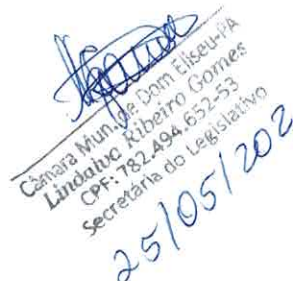 Câmara Mun. de Dom Eliseu-PA
Lindalva Ribeiro Gomes
CPF: 782.494.652-53
Secretária do Legislativo
25/05/202